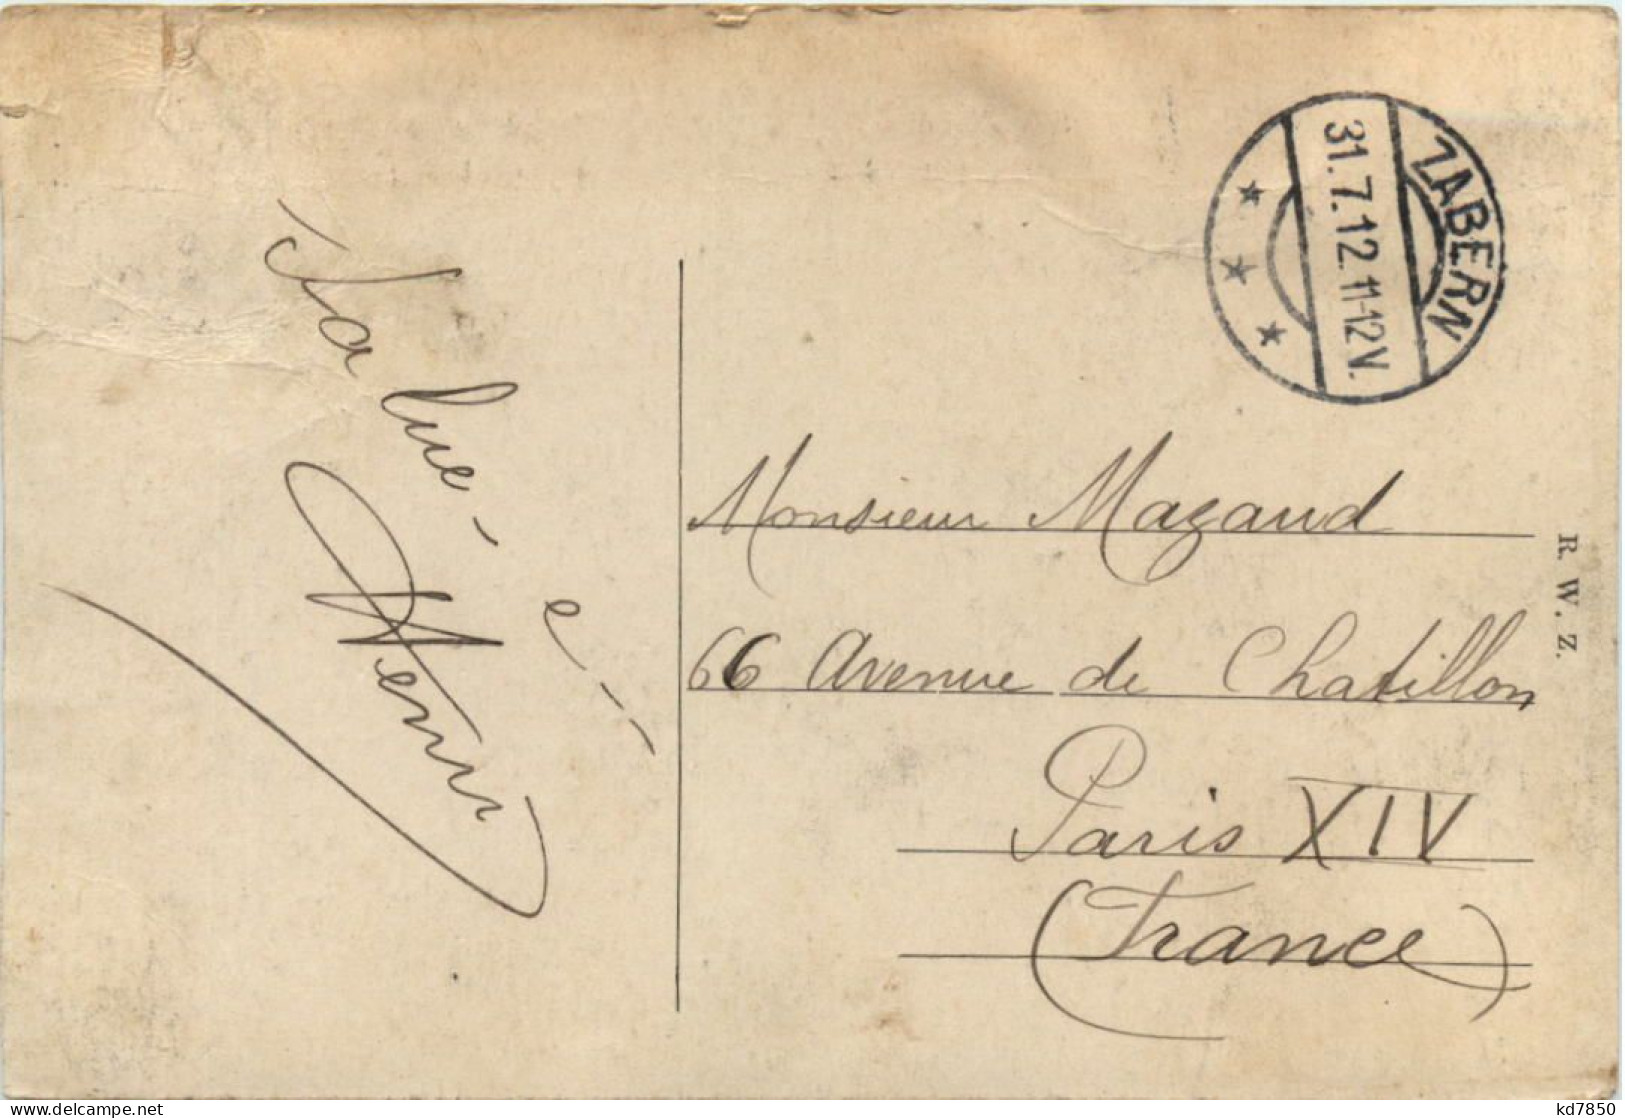 ZABERN
31.7.12.11-12V.
Henri
Monsieur Mazaud
66 Avenue de Chatillon
Paris XIV
(France)
R. W. Z.
kd7850